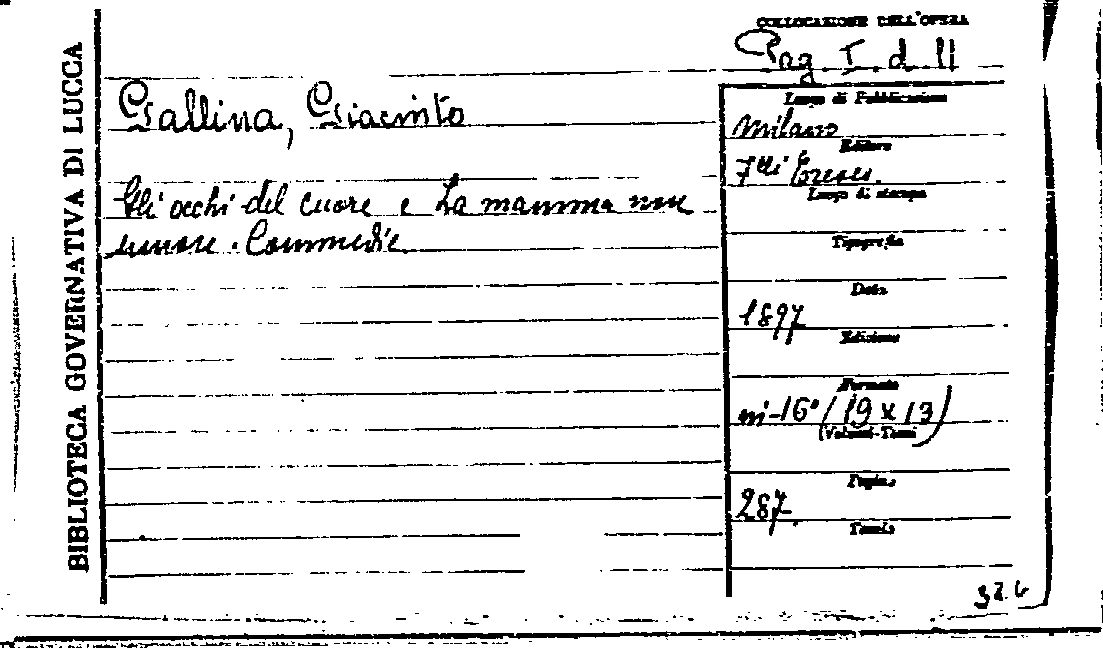 BIBLIOTECA GOVERNATIVA DI LUCCA
COLLOCAZIONE DELL'OPERA
Pag. I. d. 11
Gallina, Giacinto
Gli occhi del cuore e La mamma non
muore. Commedie
Luogo di Pubblicazione
Milano
Editore
F.lli Treves.
Luogo di stampa
Tipografia
Data
1897
Edizione
Formato
in-16° (19 x 13)
(Volumi-Tomi)
Pagine
287.
Tavole